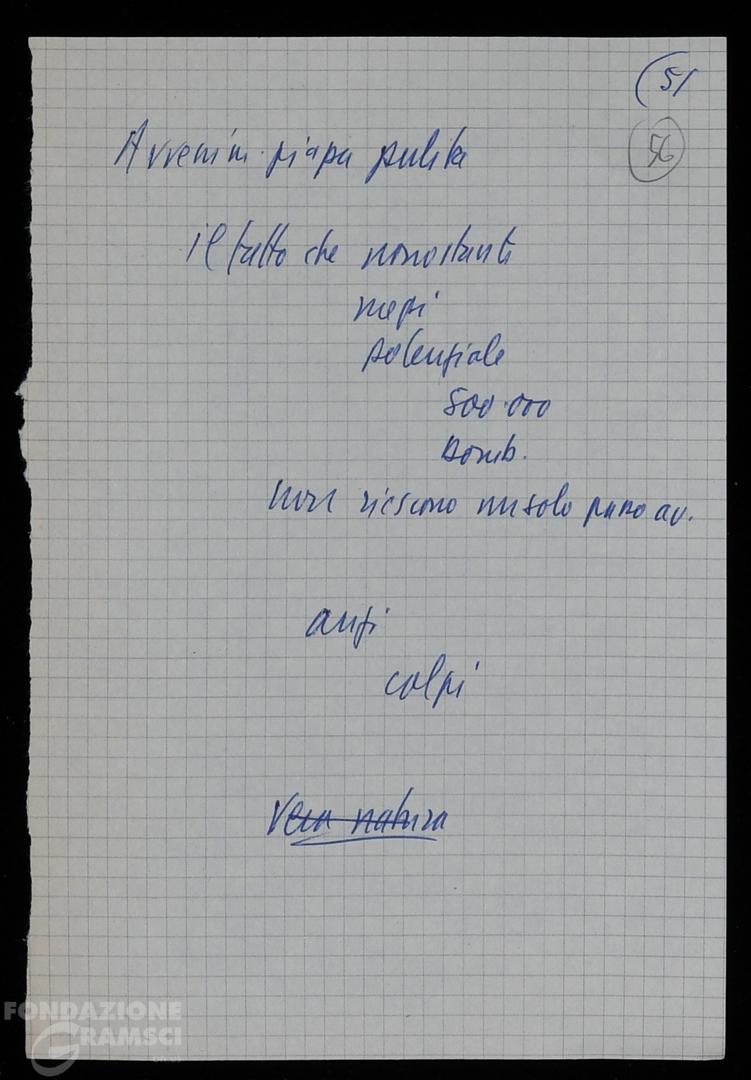 (51
56
Avvenim. piapa pulita
il fatto che nonostante
mezzi
potenziale
500.000
bomb.
non riescono un solo passo av.
anzi
colpi
Vera natura
FONDAZIONE
GRAMSCI